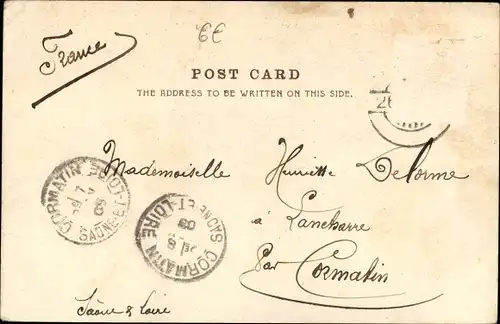 6€
France
POST CARD
THE ADDRESS TO BE WRITTEN ON THIS SIDE.
Mademoiselle Henriette Delorme
à Lancharre
Par Cormatin
Saône & Loire
CORMATIN
SAONE-ET-LOIRE
03
CORMATIN
SAONE-ET-LOIRE
8
03